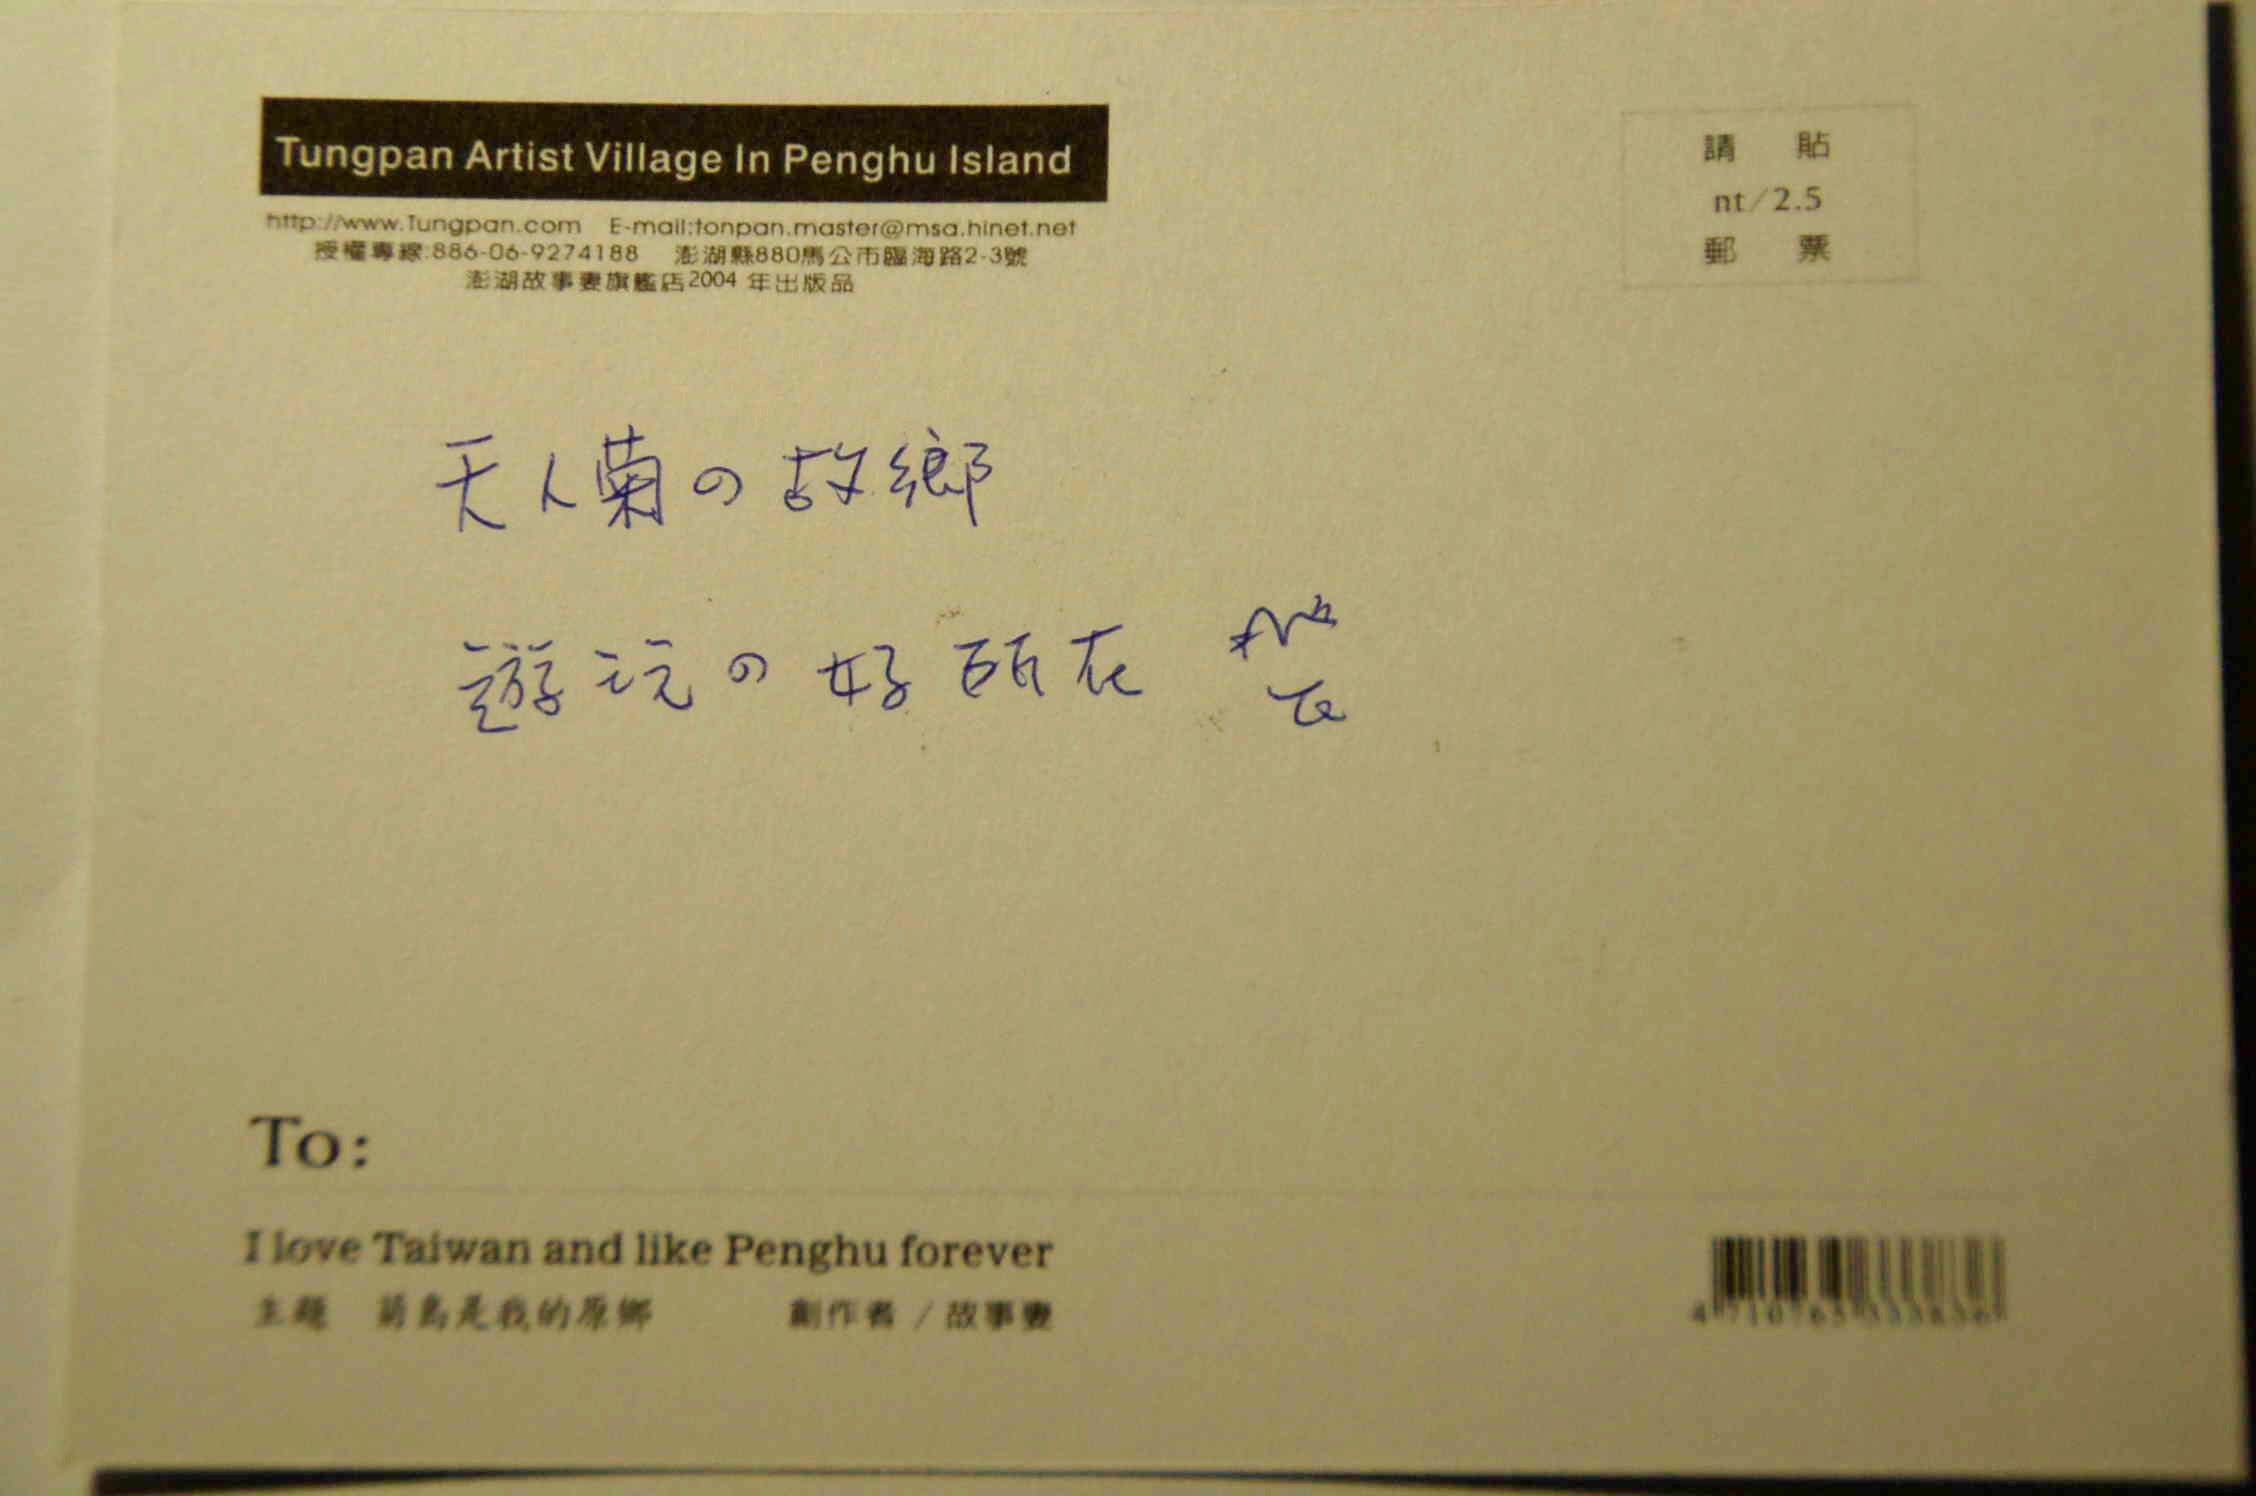 Tungpan Artist Village In Penghu Island
http://www.Tungpan.com E-mail:tonpan.master@msa.hinet.net
授權專線:886-06-9274188 澎湖縣880馬公市臨海路2-3號
澎湖故事妻旗艦店2004 年出版品
請 貼
nt/2.5
郵 票
天人菊の故鄉
遊玩の好所在
To:
I love Taiwan and like Penghu forever
主題 菊島是我的原鄉 創作者 / 故事妻